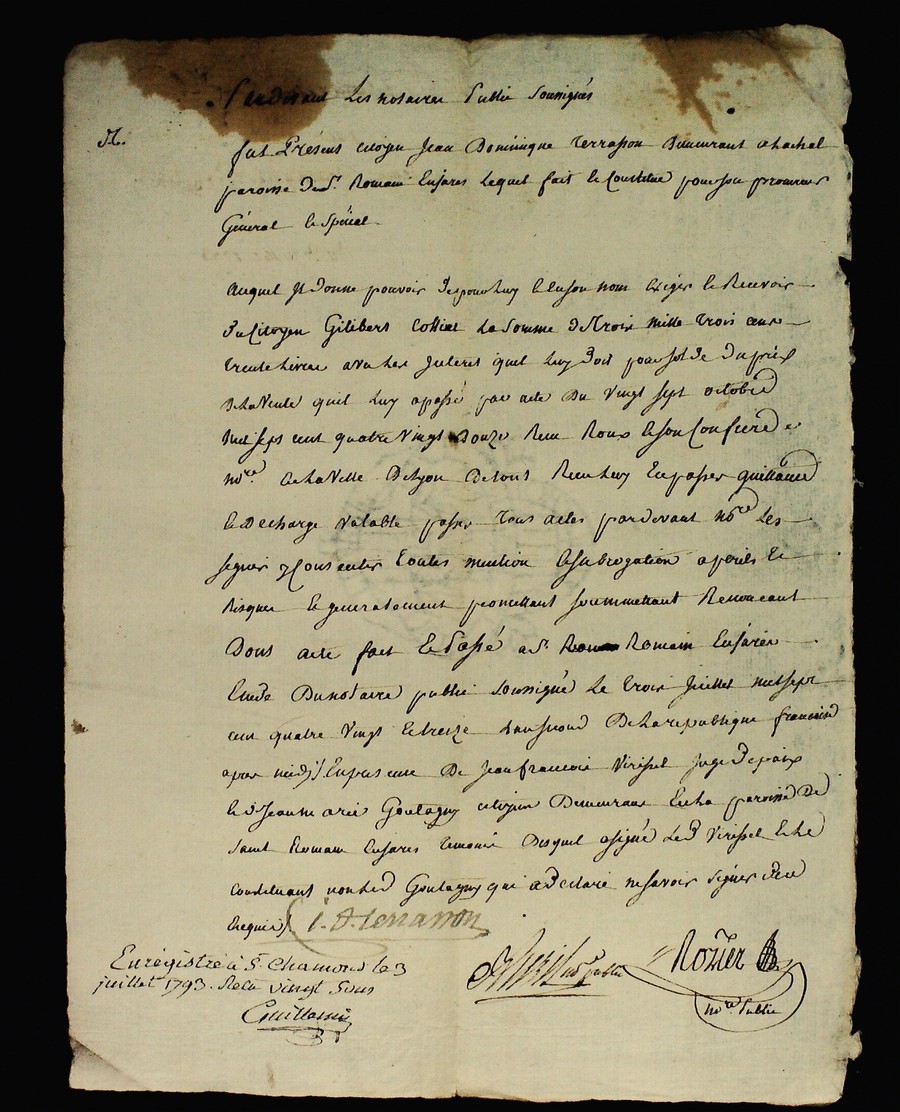 Pardevant Les notaires Public Soussignés
fut Présent citoyen Jean Dominique Terrasson Demeurant a
paroisse de St. Romain Enjares Lequel fait & Constitue pour son procureur
Général & Spécial
Auquel Il donne pouvoir de pour Luy & En son nom Exiger & Recevoir
du Citoyen Gilibert Collier La Somme de Trois mille trois cens
trente Livres avec Les Interest quil Luy doit pour Solde du prix
de La Vente quil Luy a passé par acte du Vingt sept octobre
mil sept cent quatre vingt douze Reçu Roux & son Confrere
nore de La Ville de Lyon de tout Recu Luy En passer quittance
& Decharge Valable passer tous actes pardevant nore Les
signer Consentir toutes mention & subrogation a perils &
Risques & generalement promettant soumettant Renonceant
Dont acte fait & Passé a St. Romain Enjarés
Etude du notaire public Soussigné Le trois Juillet mil sept
cent quatre vingt & treize L'an second de La republique francoise
apres midy En presence de Jean francois Virissel Juge de paix
& Sr Jean marie Goutagny citoyen Demeurant En La paroisse de
Saint Romain Enjares temoins Desquel a signé Led Virissel & Le
Constituant non Led Goutagny qui a Declaré ne savoir signer de ce
Requis J. D. Terrasson
Enregistré à St. Chamond le 3
juillet 1793. Reçu vingt sous
Rozier
nore Public